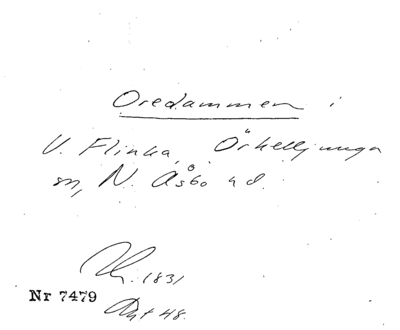 Oredammen i
V. Flinka, Örkelljunga
sn, N. Åsbo hd.
1831
Nr 7479
48.